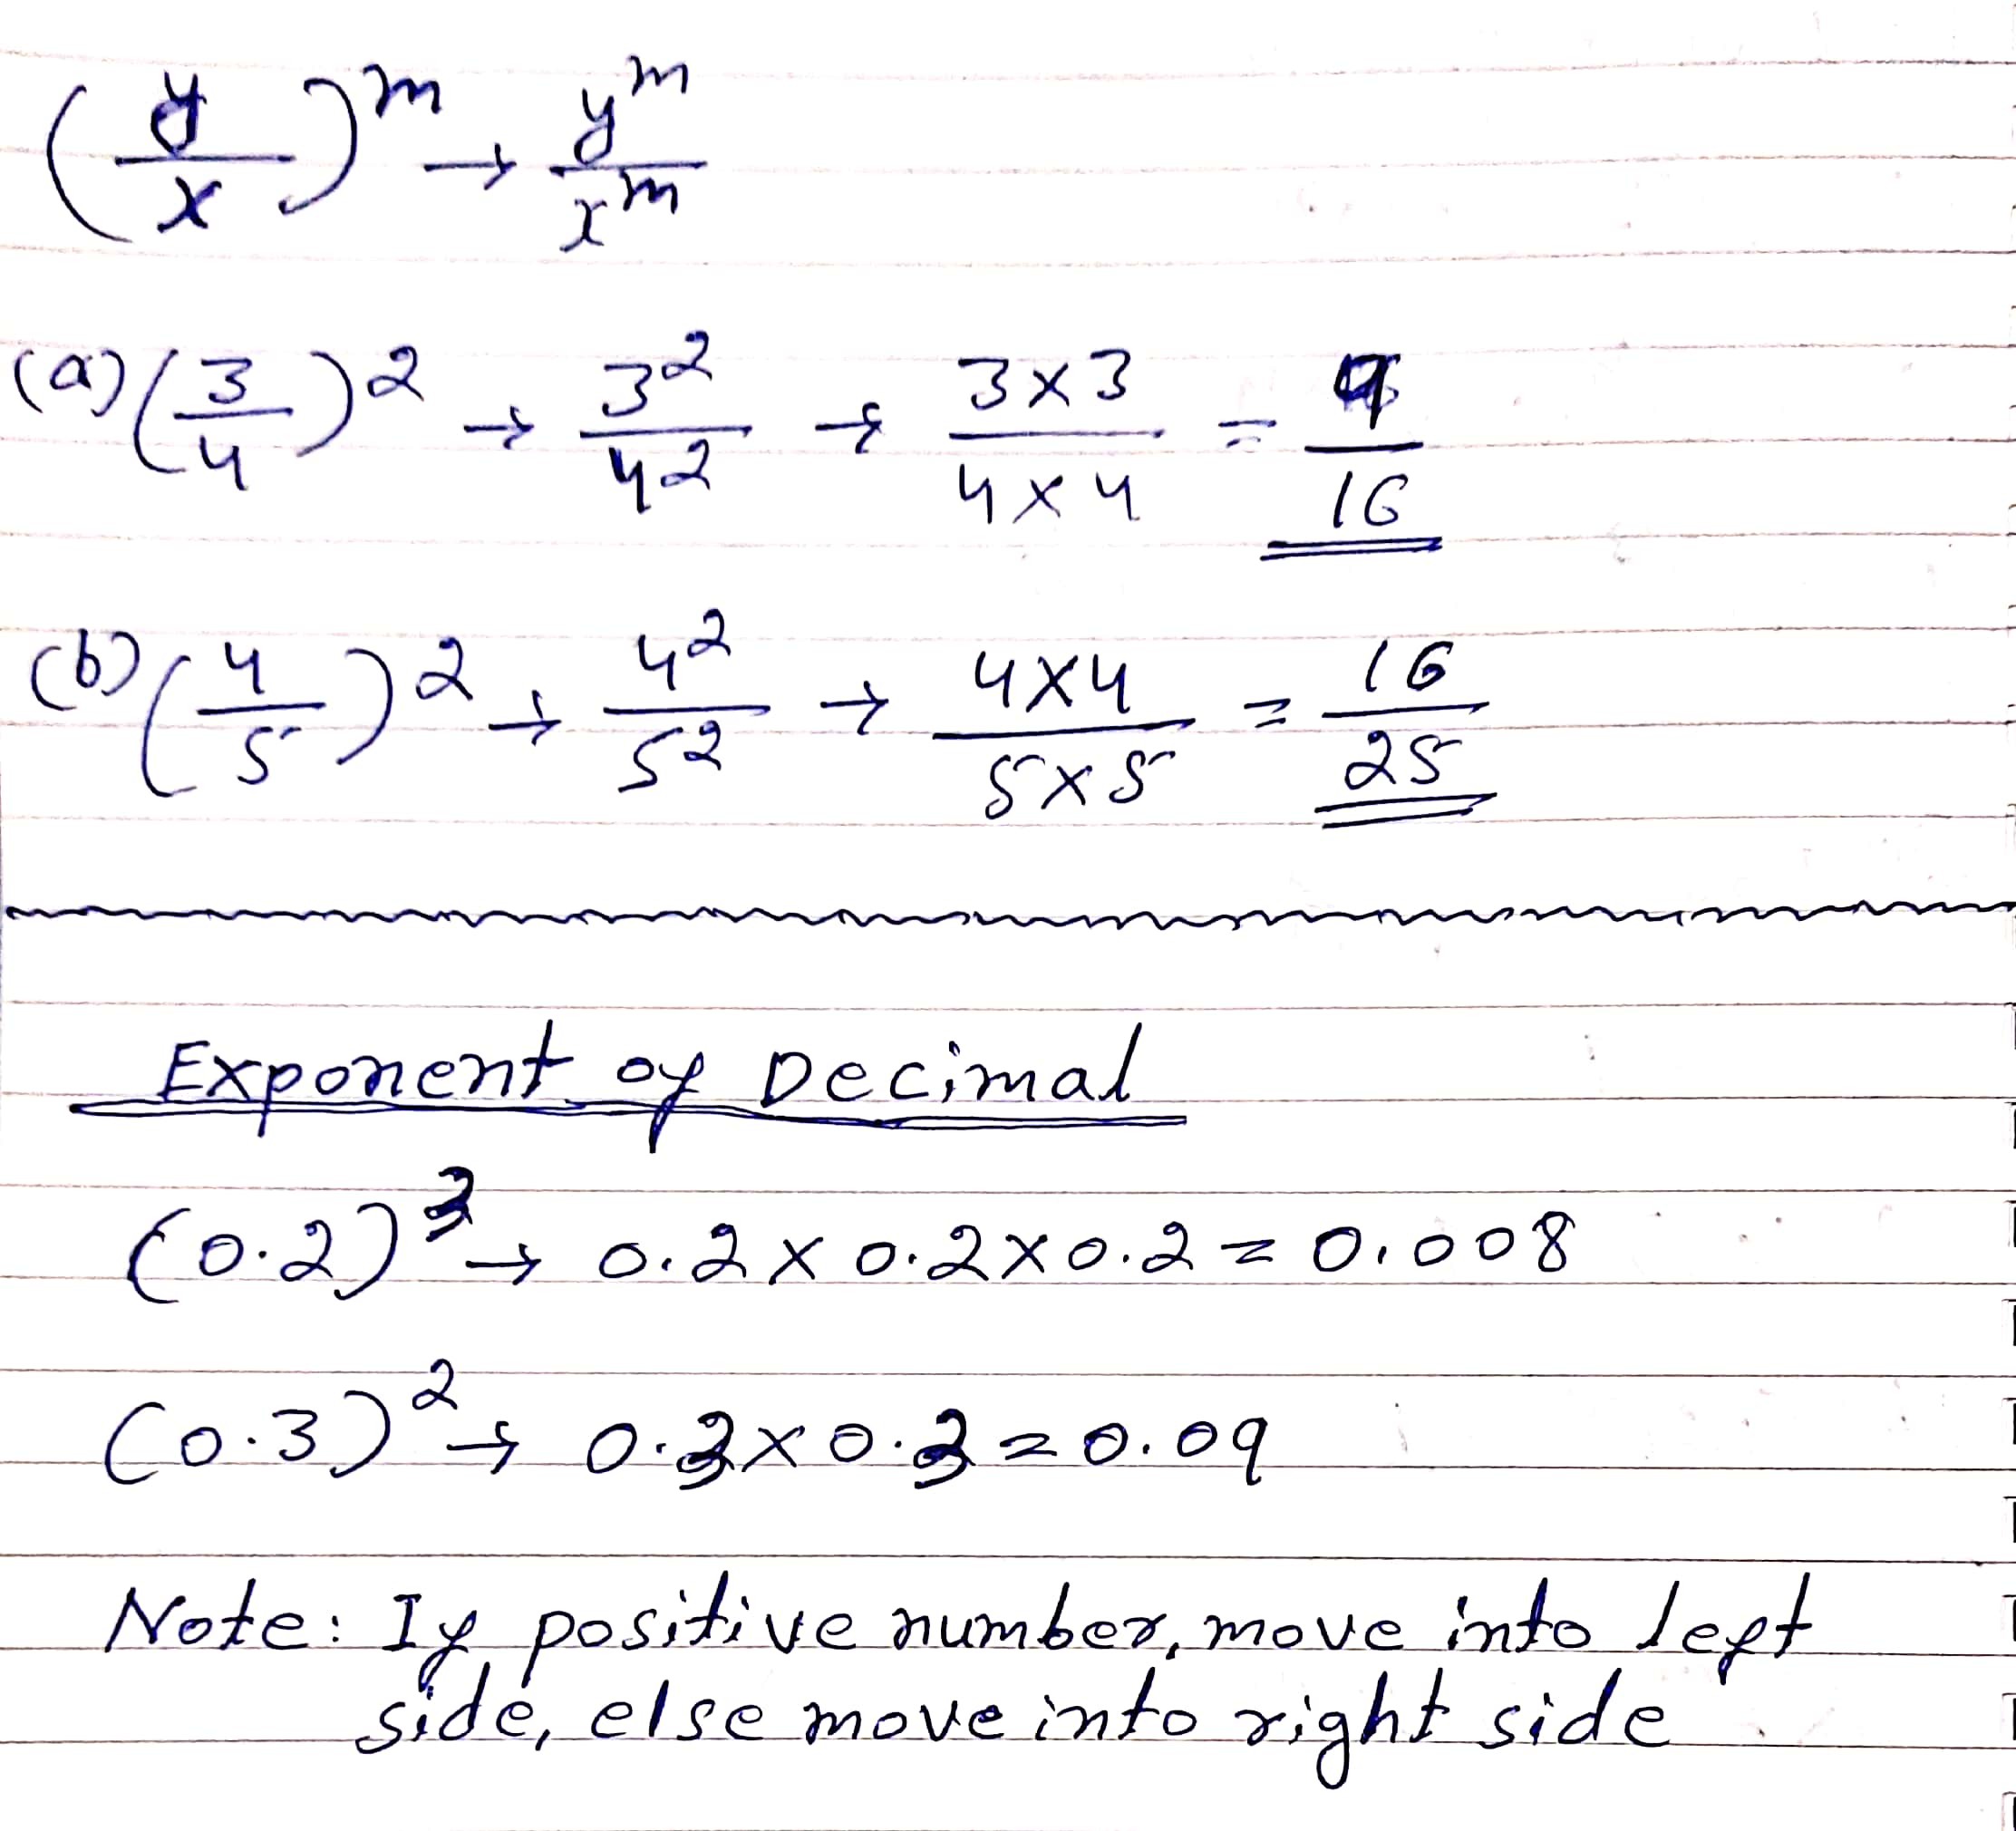 (y/x)^m → y^m/x^m
(a) (3/4)^2 → 3^2/4^2 → 3×3/4×4 = 9/16
(b) (4/5)^2 → 4^2/5^2 → 4×4/5×5 = 16/25
Exponent of Decimal
(0.2)^3 → 0.2×0.2×0.2 = 0.008
(0.3)^2 → 0.3×0.3 = 0.09
Note: If positive number, move into left
side, else move into right side